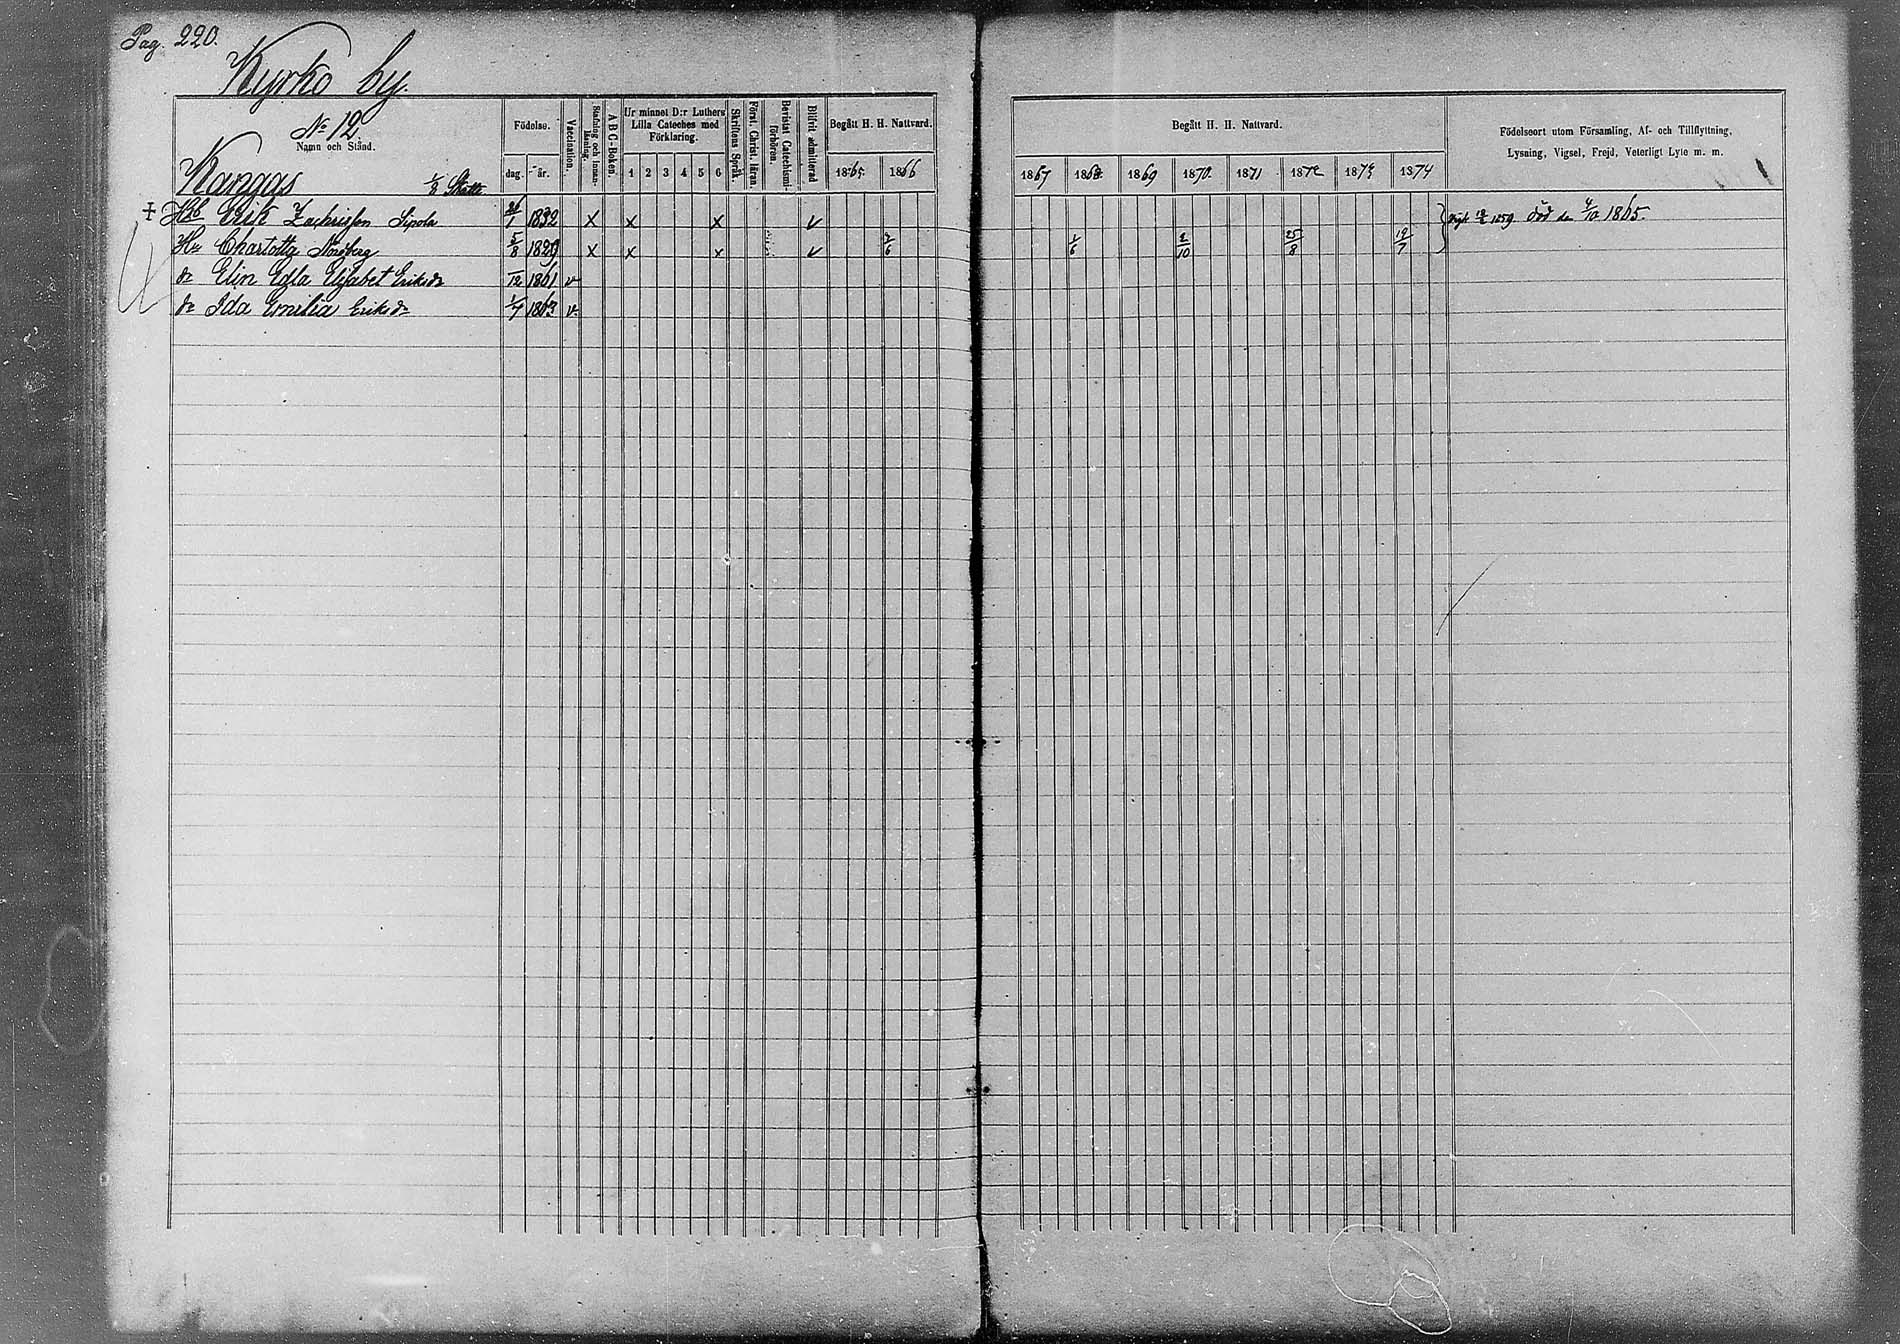 Pag. 220.
Kyrko by.
No 12
Namn och Stånd.
Kangas 1/3 Skatte
Födelse.
dag. år.
Vaccination.
Stafning och Innanläsning.
ABC-Boken.
Ur minnet D:r Luthers
Lilla Cateches med
Förklaring.
1 2 3 4 5 6
Skriftens Språk.
Först. Christ. läran.
Bevistat Catechismiförhören.
Blifvit admitterad
Begått H. H. Nattvard.
1865. 1866
Begått H. H. Nattvard.
1867 1868. 1869 1870. 1871 1872 1873 1874
Födelseort utom Församling, Af- och Tillflyttning,
Lysning, Vigsel, Frejd, Veterligt Lyte m. m.
Hbb Erik Zachrisson Sipola 26/1 1832 x x x v Vigd 1859. död den 4/10 1865.
Hu Charlotta Nordberg 5/8 1829 x x x v 2/6 1/6 2/10 25/8 19/7
dr Elin Edla Elisabet Eriksdr /12 1861 v
dr Ida Emilia Eriksdr 1/7 1863 v.